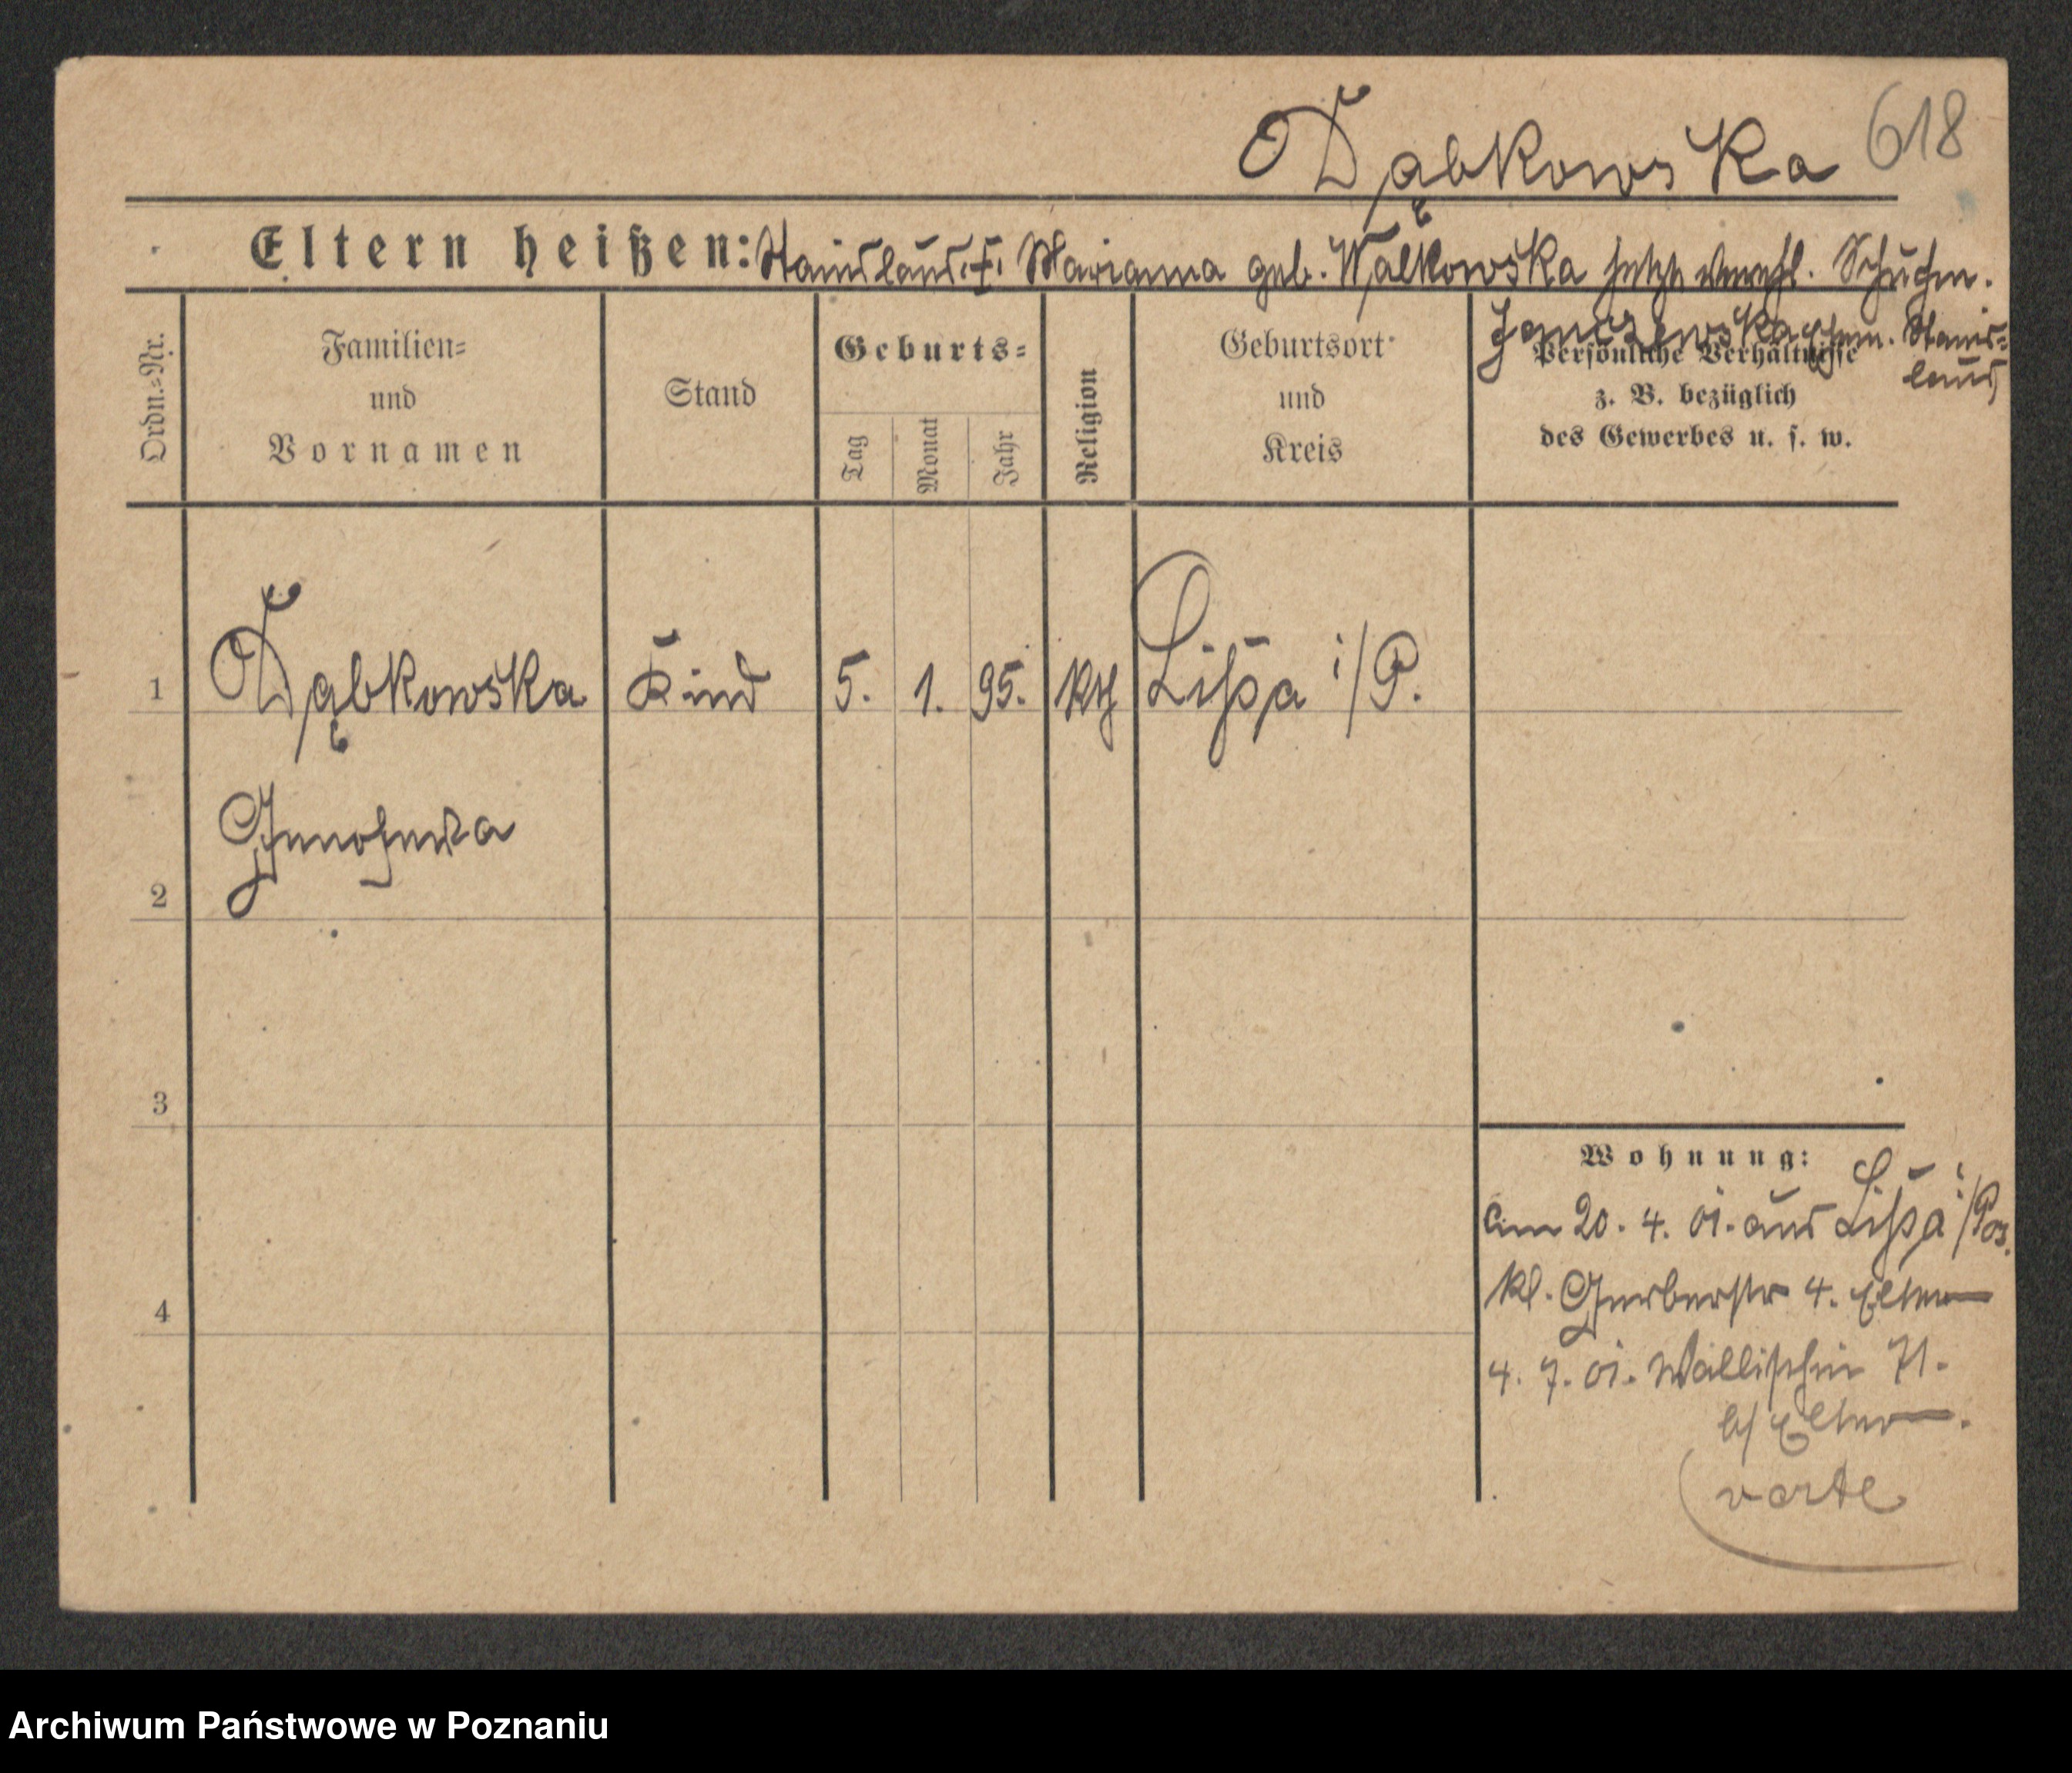 Dąbkowska 618
Eltern heißen: Stanislaus † Marianna geb. Walkowska jetzt verehl. Schuhm.
Janiszewska Ehem. Stanis-
laus
Ordn.=Nr.
Familien=
und
Vornamen
Stand
Geburts=
Tag
Monat
Jahr
Religion
Geburtsort
und
Kreis
Persönliche Verhältnisse
z. B. bezüglich
des Gewerbes u. s. w.
1 Dąbkowska Kind 5. 1. 95. kth Lissa i/P.
Genofewa
2
3
4
Wohnung:
am 20. 4. 01. aus Lissa i/Pos.
kl. Gerberstr 4. Eltern
4. 7. 01. Wallischei 71.
b/ Eltern.
Archiwum Państwowe w Poznaniu